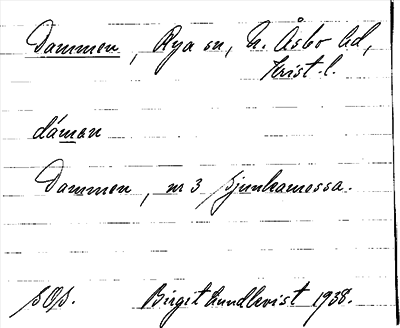 Dammen, Rya sn, N. Åsbo hd,
Krist. l.
dámən
Dammen, nr 3 Sjunkamossa.
sOs. Birgit Lundkvist 1938.